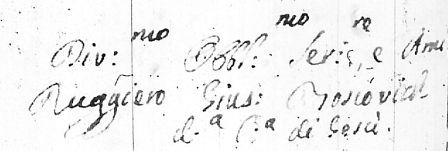 Div:mo Obbl:mo Ser:re e Ami
Ruggiero Gius: Boscovich
d.a C.a di Gesù.